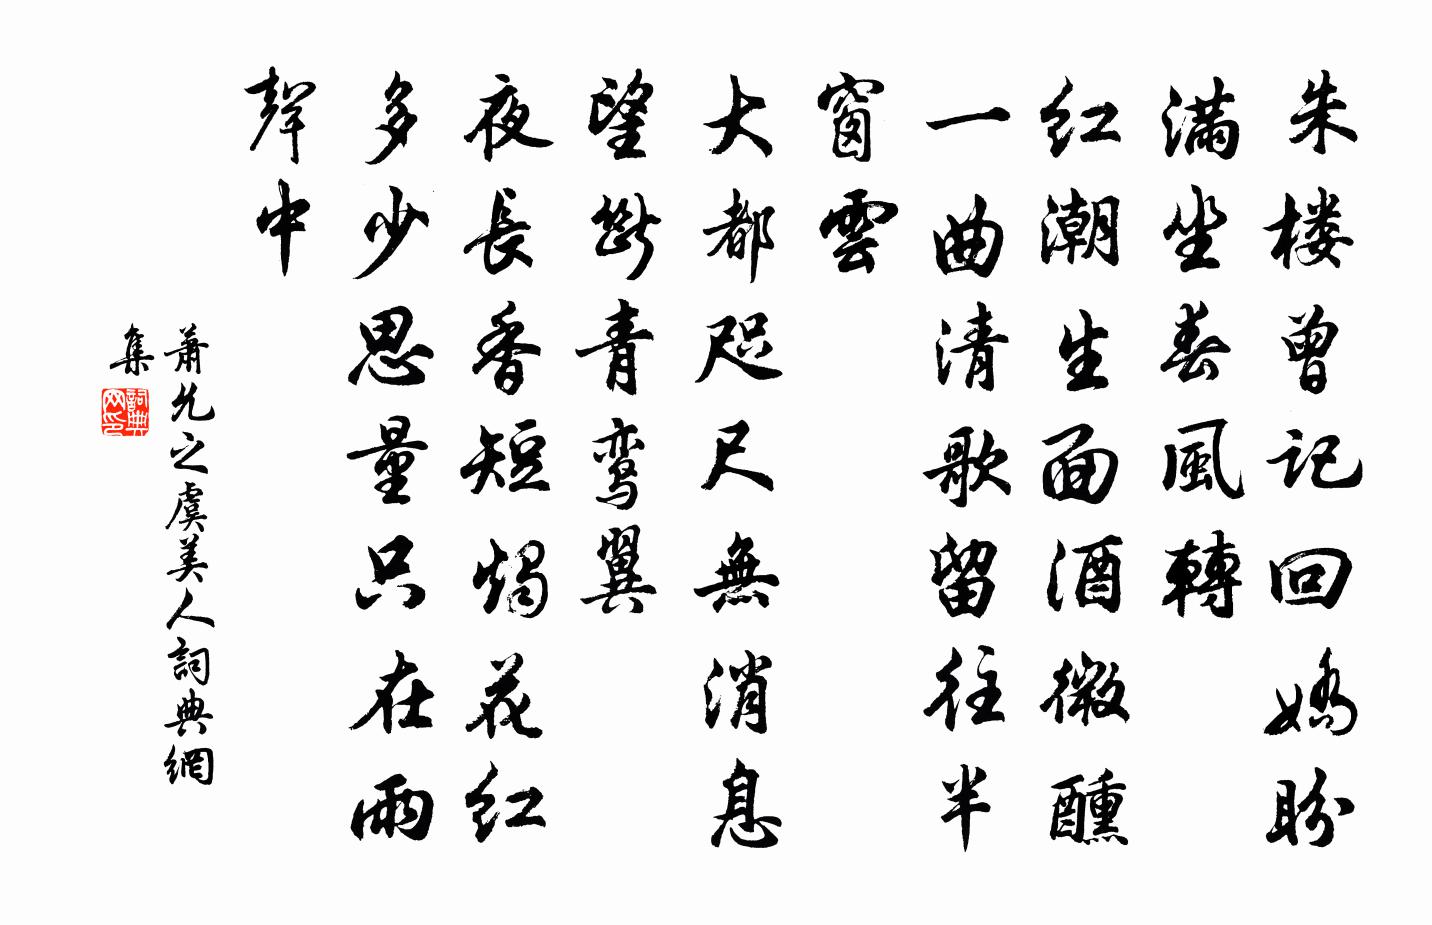 朱楼曾记回嬌盼
满坐春風轉
红潮生面酒微醺
一曲清歌留往半
窗雲
大都咫尺無消息
望斷青鸾翼
夜長香短燭花红
多少思量只在雨
聲中
蕭允之虞美人詞典網
集
詞典网印